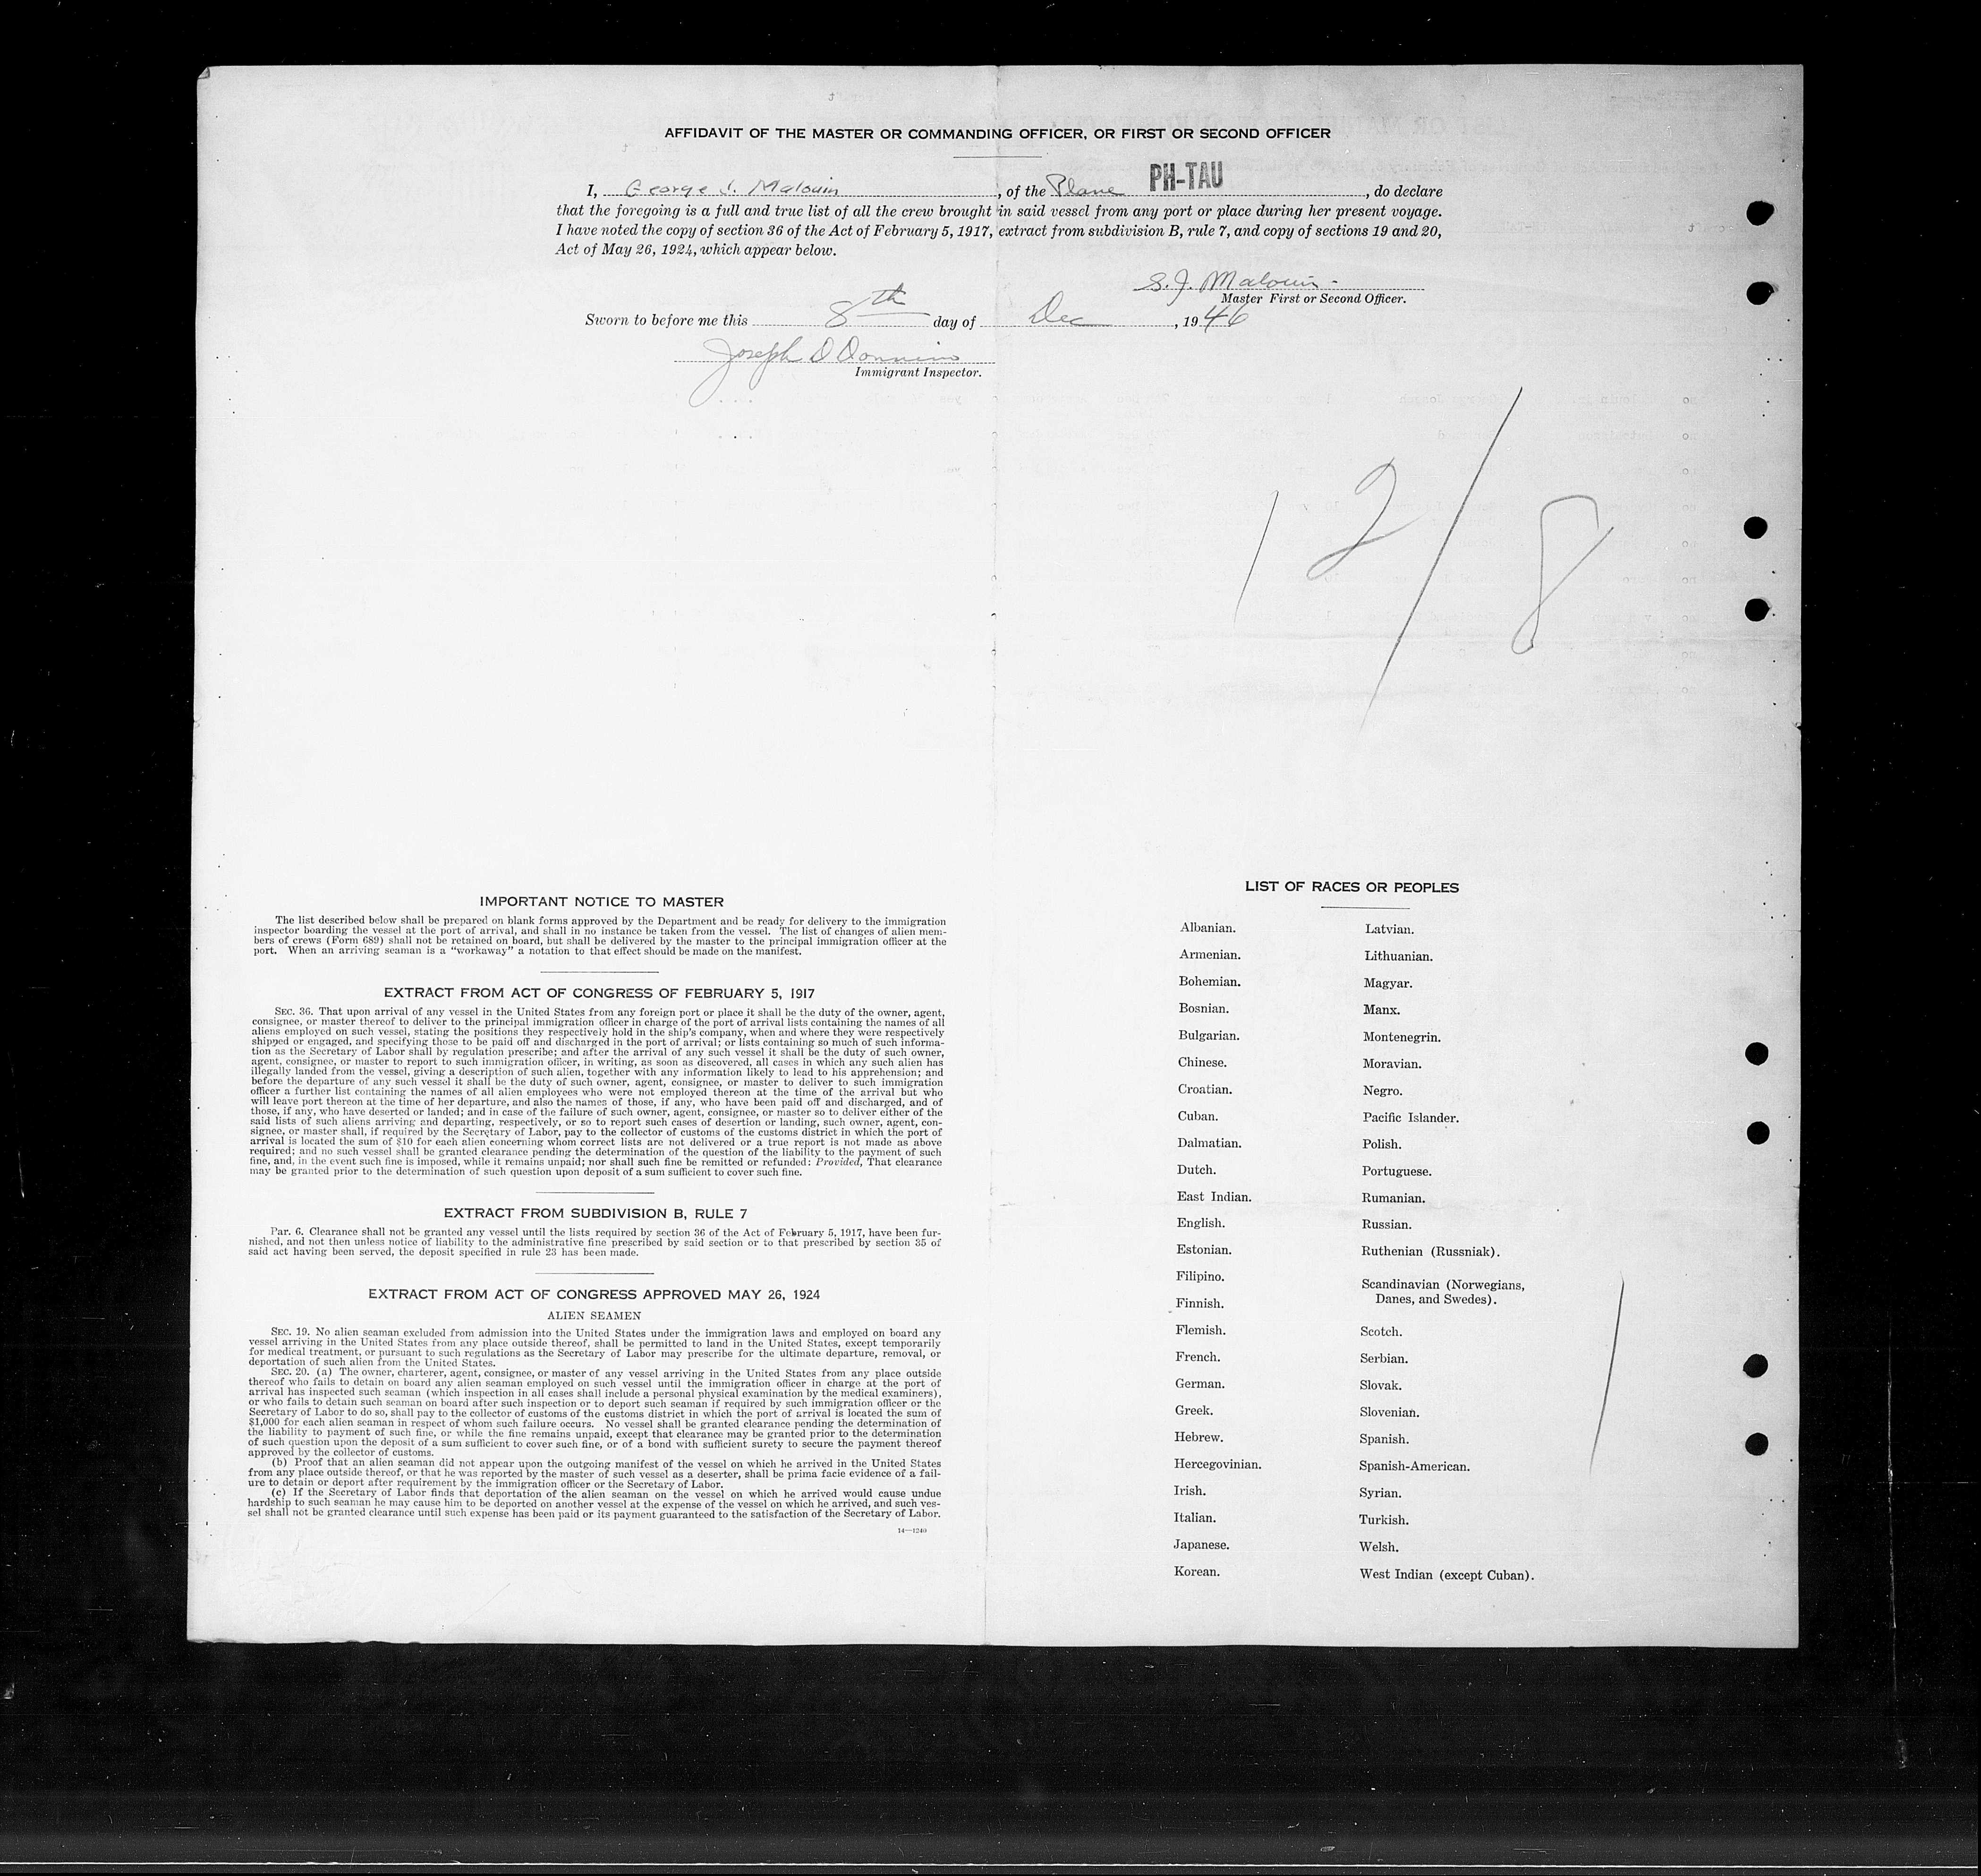 AFFIDAVIT OF THE MASTER OR COMMANDING OFFICER, OR FIRST OR SECOND OFFICER
I, George J. Malouin, of the Plane PH-TAU, do declare
that the foregoing is a full and true list of all the crew brought in said vessel from any port or place during her present voyage.
I have noted the copy of section 36 of the Act of February 5, 1917, extract from subdivision B, rule 7, and copy of sections 19 and 20,
Act of May 26, 1924, which appear below.
G. J. Malouin
Master First or Second Officer.
Sworn to before me this 8th day of Dec, 1946
Joseph D
Immigrant Inspector.
12/8
IMPORTANT NOTICE TO MASTER
The list described below shall be prepared on blank forms approved by the Department and be ready for delivery to the immigration
inspector boarding the vessel at the port of arrival, and shall in no instance be taken from the vessel. The list of changes of alien mem-
bers of crews (Form 689) shall not be retained on board, but shall be delivered by the master to the principal immigration officer at the
port. When an arriving seaman is a “workaway” a notation to that effect should be made on the manifest.
EXTRACT FROM ACT OF CONGRESS OF FEBRUARY 5, 1917
SEC. 36. That upon arrival of any vessel in the United States from any foreign port or place it shall be the duty of the owner, agent,
consignee, or master thereof to deliver to the principal immigration officer in charge of the port of arrival lists containing the names of all
aliens employed on such vessel, stating the positions they respectively hold in the ship's company, when and where they were respectively
shipped or engaged, and specifying those to be paid off and discharged in the port of arrival; or lists containing so much of such informa-
tion as the Secretary of Labor shall by regulation prescribe; and after the arrival of any such vessel it shall be the duty of such owner,
agent, consignee, or master to report to such immigration officer, in writing, as soon as discovered, all cases in which any such alien has
illegally landed from the vessel, giving a description of such alien, together with any information likely to lead to his apprehension; and
before the departure of any such vessel it shall be the duty of such owner, agent, consignee, or master to deliver to such immigration
officer a further list containing the names of all alien employees who were not employed thereon at the time of the arrival but who
will leave port thereon at the time of her departure, and also the names of those, if any, who have been paid off and discharged, and of
those, if any, who have deserted or landed; and in case of the failure of such owner, agent, consignee, or master so to deliver either of the
said lists of such aliens arriving and departing, respectively, or so to report such cases of desertion or landing, such owner, agent, con-
signee, or master shall, if required by the Secretary of Labor, pay to the collector of customs of the customs district in which the port of
arrival is located the sum of $10 for each alien concerning whom correct lists are not delivered or a true report is not made as above
required; and no such vessel shall be granted clearance pending the determination of the question of the liability to the payment of such
fine, and, in the event such fine is imposed, while it remains unpaid; nor shall such fine be remitted or refunded: Provided, That clearance
may be granted prior to the determination of such question upon deposit of a sum sufficient to cover such fine.
EXTRACT FROM SUBDIVISION B, RULE 7
Par. 6. Clearance shall not be granted any vessel until the lists required by section 36 of the Act of February 5, 1917, have been fur-
nished, and not then unless notice of liability to the administrative fine prescribed by said section or to that prescribed by section 35 of
said act having been served, the deposit specified in rule 23 has been made.
EXTRACT FROM ACT OF CONGRESS APPROVED MAY 26, 1924
ALIEN SEAMEN
SEC. 19. No alien seaman excluded from admission into the United States under the immigration laws and employed on board any
vessel arriving in the United States from any place outside thereof, shall be permitted to land in the United States, except temporarily
for medical treatment, or pursuant to such regulations as the Secretary of Labor may prescribe for the ultimate departure, removal, or
deportation of such alien from the United States.
SEC. 20. (a) The owner, charterer, agent, consignee, or master of any vessel arriving in the United States from any place outside
thereof who fails to detain on board any alien seaman employed on such vessel until the immigration officer in charge at the port of
arrival has inspected such seaman (which inspection in all cases shall include a personal physical examination by the medical examiners),
or who fails to detain such seaman on board after such inspection or to deport such seaman if required by such immigration officer or the
Secretary of Labor to do so, shall pay to the collector of customs of the customs district in which the port of arrival is located the sum of
$1,000 for each alien seaman in respect of whom such failure occurs. No vessel shall be granted clearance pending the determination of
the liability to payment of such fine, or while the fine remains unpaid, except that clearance may be granted prior to the determination
of such question upon the deposit of a sum sufficient to cover such fine, or of a bond with sufficient surety to secure the payment thereof
approved by the collector of customs.
(b) Proof that an alien seaman did not appear upon the outgoing manifest of the vessel on which he arrived in the United States
from any place outside thereof, or that he was reported by the master of such vessel as a deserter, shall be prima facie evidence of a fail-
ure to detain or deport after requirement by the immigration officer or the Secretary of Labor.
(c) If the Secretary of Labor finds that deportation of the alien seaman on the vessel on which he arrived would cause undue
hardship to such seaman he may cause him to be deported on another vessel at the expense of the vessel on which he arrived, and such ves-
sel shall not be granted clearance until such expense has been paid or its payment guaranteed to the satisfaction of the Secretary of Labor.
14—1240
LIST OF RACES OR PEOPLES
Albanian.
Armenian.
Bohemian.
Bosnian.
Bulgarian.
Chinese.
Croatian.
Cuban.
Dalmatian.
Dutch.
East Indian.
English.
Estonian.
Filipino.
Finnish.
Flemish.
French.
German.
Greek.
Hebrew.
Hercegovinian.
Irish.
Italian.
Japanese.
Korean.
Latvian.
Lithuanian.
Magyar.
Manx.
Montenegrin.
Moravian.
Negro.
Pacific Islander.
Polish.
Portuguese.
Rumanian.
Russian.
Ruthenian (Russniak).
Scandinavian (Norwegians,
Danes, and Swedes).
Scotch.
Serbian.
Slovak.
Slovenian.
Spanish.
Spanish-American.
Syrian.
Turkish.
Welsh.
West Indian (except Cuban).